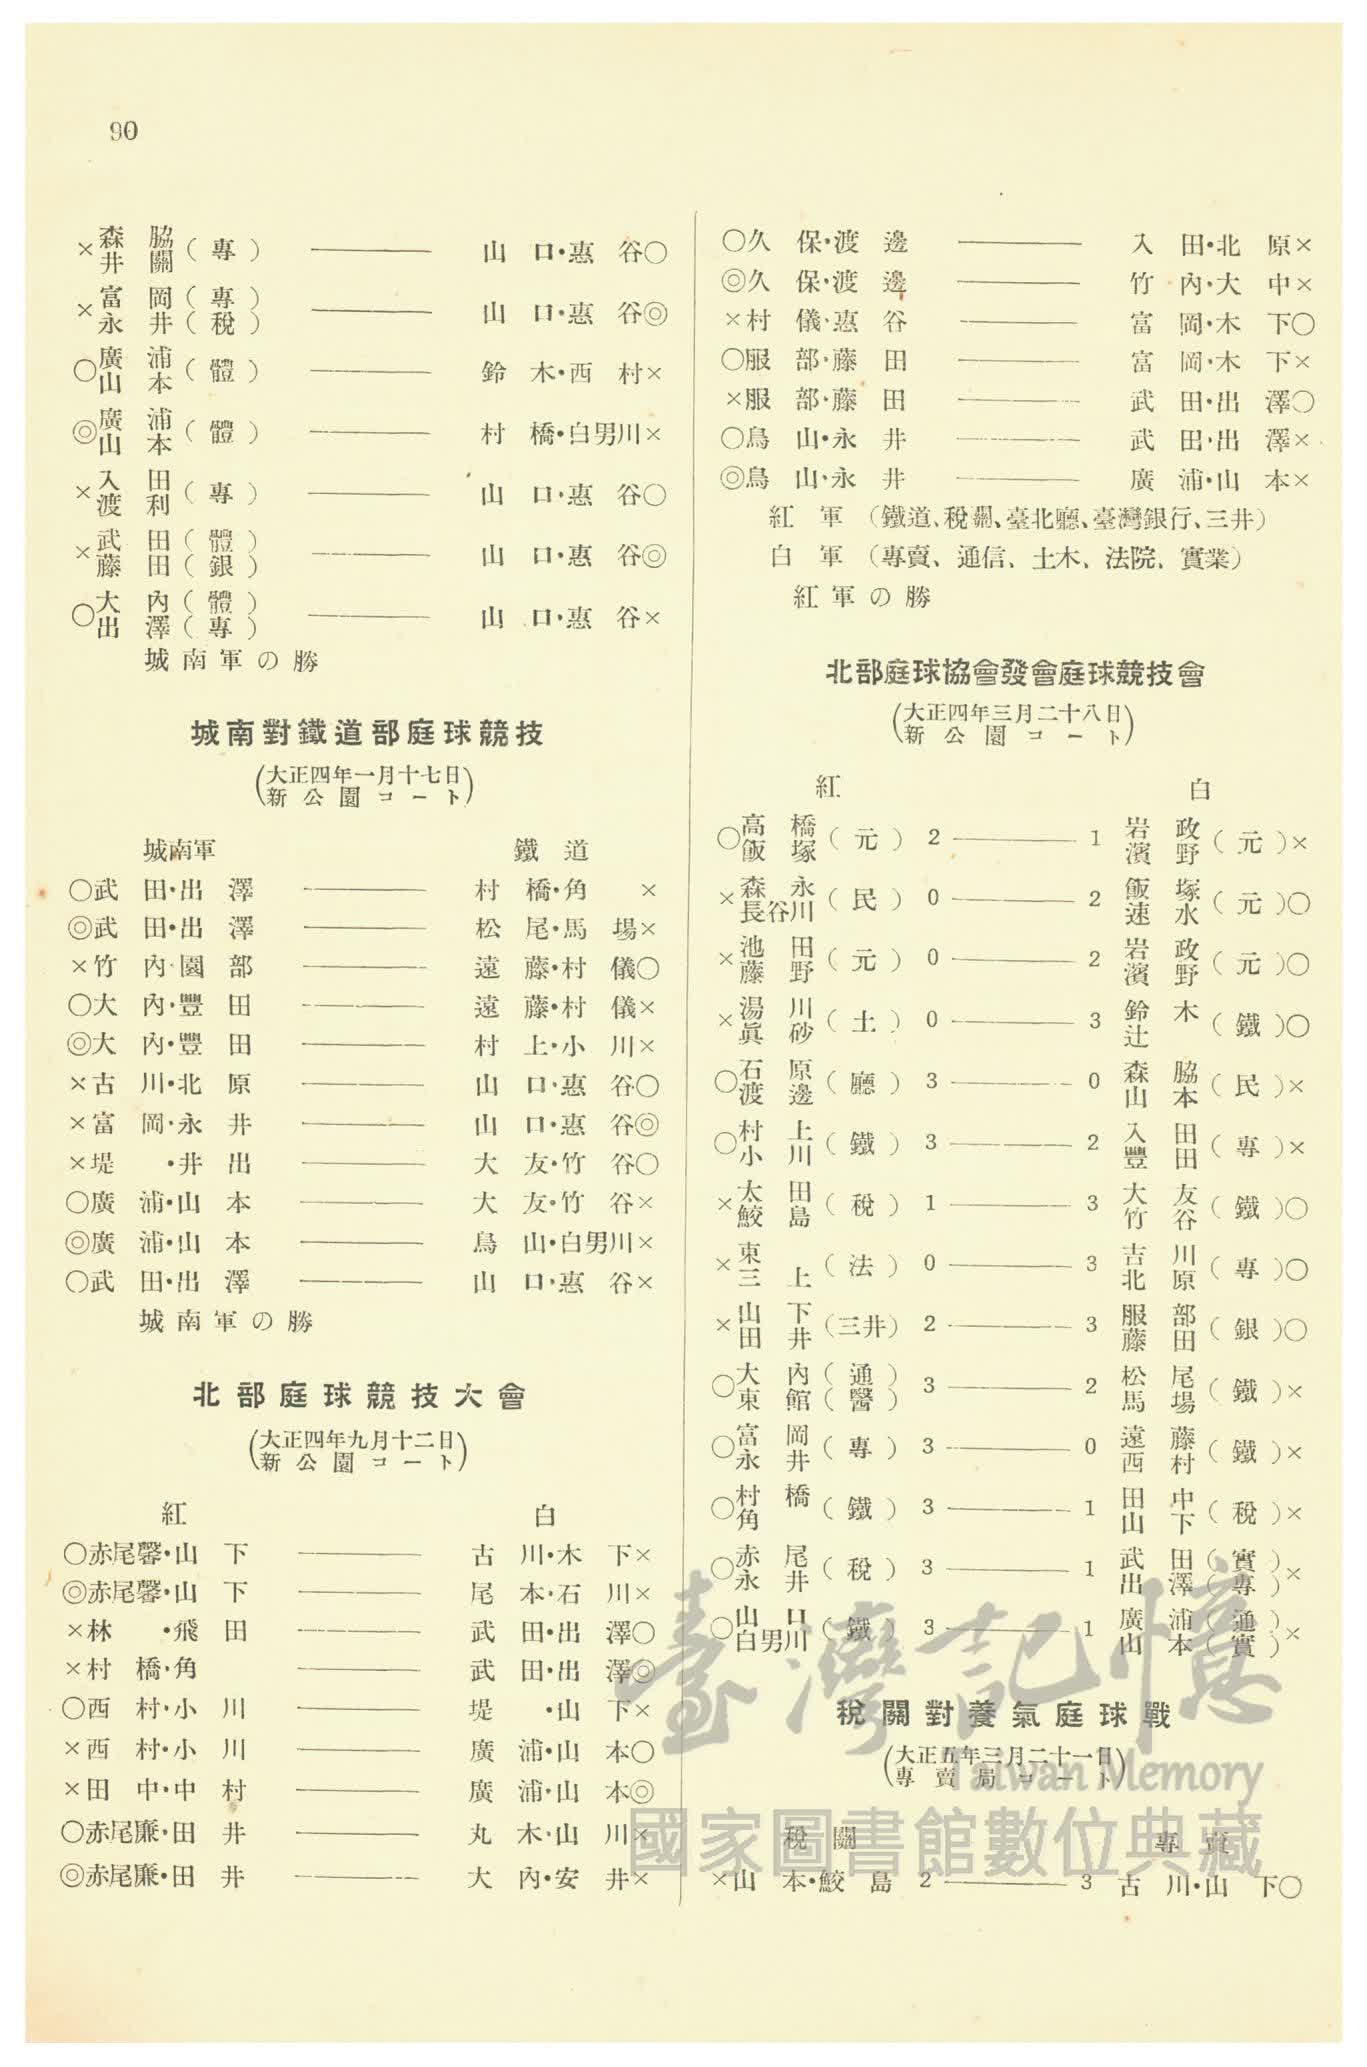 90
×森脇井關(專)————山口・惠谷○
×富岡(專)永井(稅)————山口・惠谷◎
○廣浦山本(體)————鈴木・西村×
◎廣浦山本(體)————村橋・白男川×
×入田渡利(專)————山口・惠谷○
×武田(體)藤田(銀)————山口・惠谷◎
○大內(體)出澤(專)————山口・惠谷×
城南軍の勝
城南對鐵道部庭球競技
(大正四年一月十七日
新公園コート)
城南軍 鐵道
○武田・出澤————村橋・角×
◎武田・出澤————松尾・馬場×
×竹內・園部————遠藤・村儀○
○大內・豐田————遠藤・村儀×
◎大內・豐田————村上・小川×
×古川・北原————山口・惠谷○
×富岡・永井————山口・惠谷◎
×堤・井出————大友・竹谷○
○廣浦・山本————大友・竹谷×
◎廣浦・山本————鳥山・白男川×
○武田・出澤————山口・惠谷×
城南軍の勝
北部庭球競技大會
(大正四年九月十二日
新公園コート)
紅 白
○赤尾馨・山下————古川・木下×
◎赤尾馨・山下————尾本・石川×
×林・飛田————武田・出澤○
×村橋・角————武田・出澤◎
○西村・小川————堤・山下×
×西村・小川————廣浦・山本○
×田中・中村————廣浦・山本◎
○赤尾廉・田井————丸木・山川×
◎赤尾廉・田井————大內・安井×
○久保・渡邊————入田・北原×
◎久保・渡邊————竹內・大中×
×村儀・惠谷————富岡・木下○
○服部・藤田————富岡・木下×
×服部・藤田————武田・出澤○
○鳥山・永井————武田・出澤×
◎鳥山・永井————廣浦・山本×
紅軍(鐵道、稅關、臺北廳、臺灣銀行、三井)
白軍(專賣、通信、土木、法院、實業)
紅軍の勝
北部庭球協會發會庭球競技會
(大正四年三月二十八日
新公園コート)
紅 白
○高橋飯塚(元)2————1岩政濱野(元)×
×森永長谷川(民)0————2飯塚速水(元)○
×池田藤野(元)0————2岩政濱野(元)○
×湯川眞砂(土)0————3鈴木辻(鐵)○
○石原渡邊(廳)3————0森脇山本(民)×
○村上小川(鐵)3————2入田豐田(專)×
×太田鮫島(稅)1————3大友竹谷(鐵)○
×東三上(法)0————3吉川北原(專)○
×山下田井(三井)2————3服部藤田(銀)○
○大內(通)東館(醫)3————2松尾馬場(鐵)×
○富岡永井(專)3————0遠藤西村(鐵)×
○村橋角(鐵)3————1田中山下(稅)×
○赤尾永井(稅)3————1武田(實)出澤(專)×
○山口白男川(鐵)3————1廣浦(通)山本(實)×
稅關對養氣庭球戰
(大正五年三月二十一日
專賣局コート)
稅關 專賣
×山本・鮫島2————3古川・山下○
臺灣記憶
Taiwan Memory
國家圖書館數位典藏